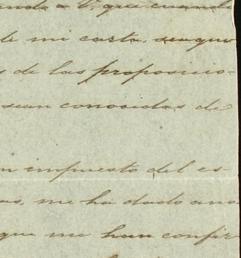 a V. que cuando
de mi carta, aunque
s de las proposicio-
sean conocidas de
n impuesto del es-
me ha dado una
que me han confir